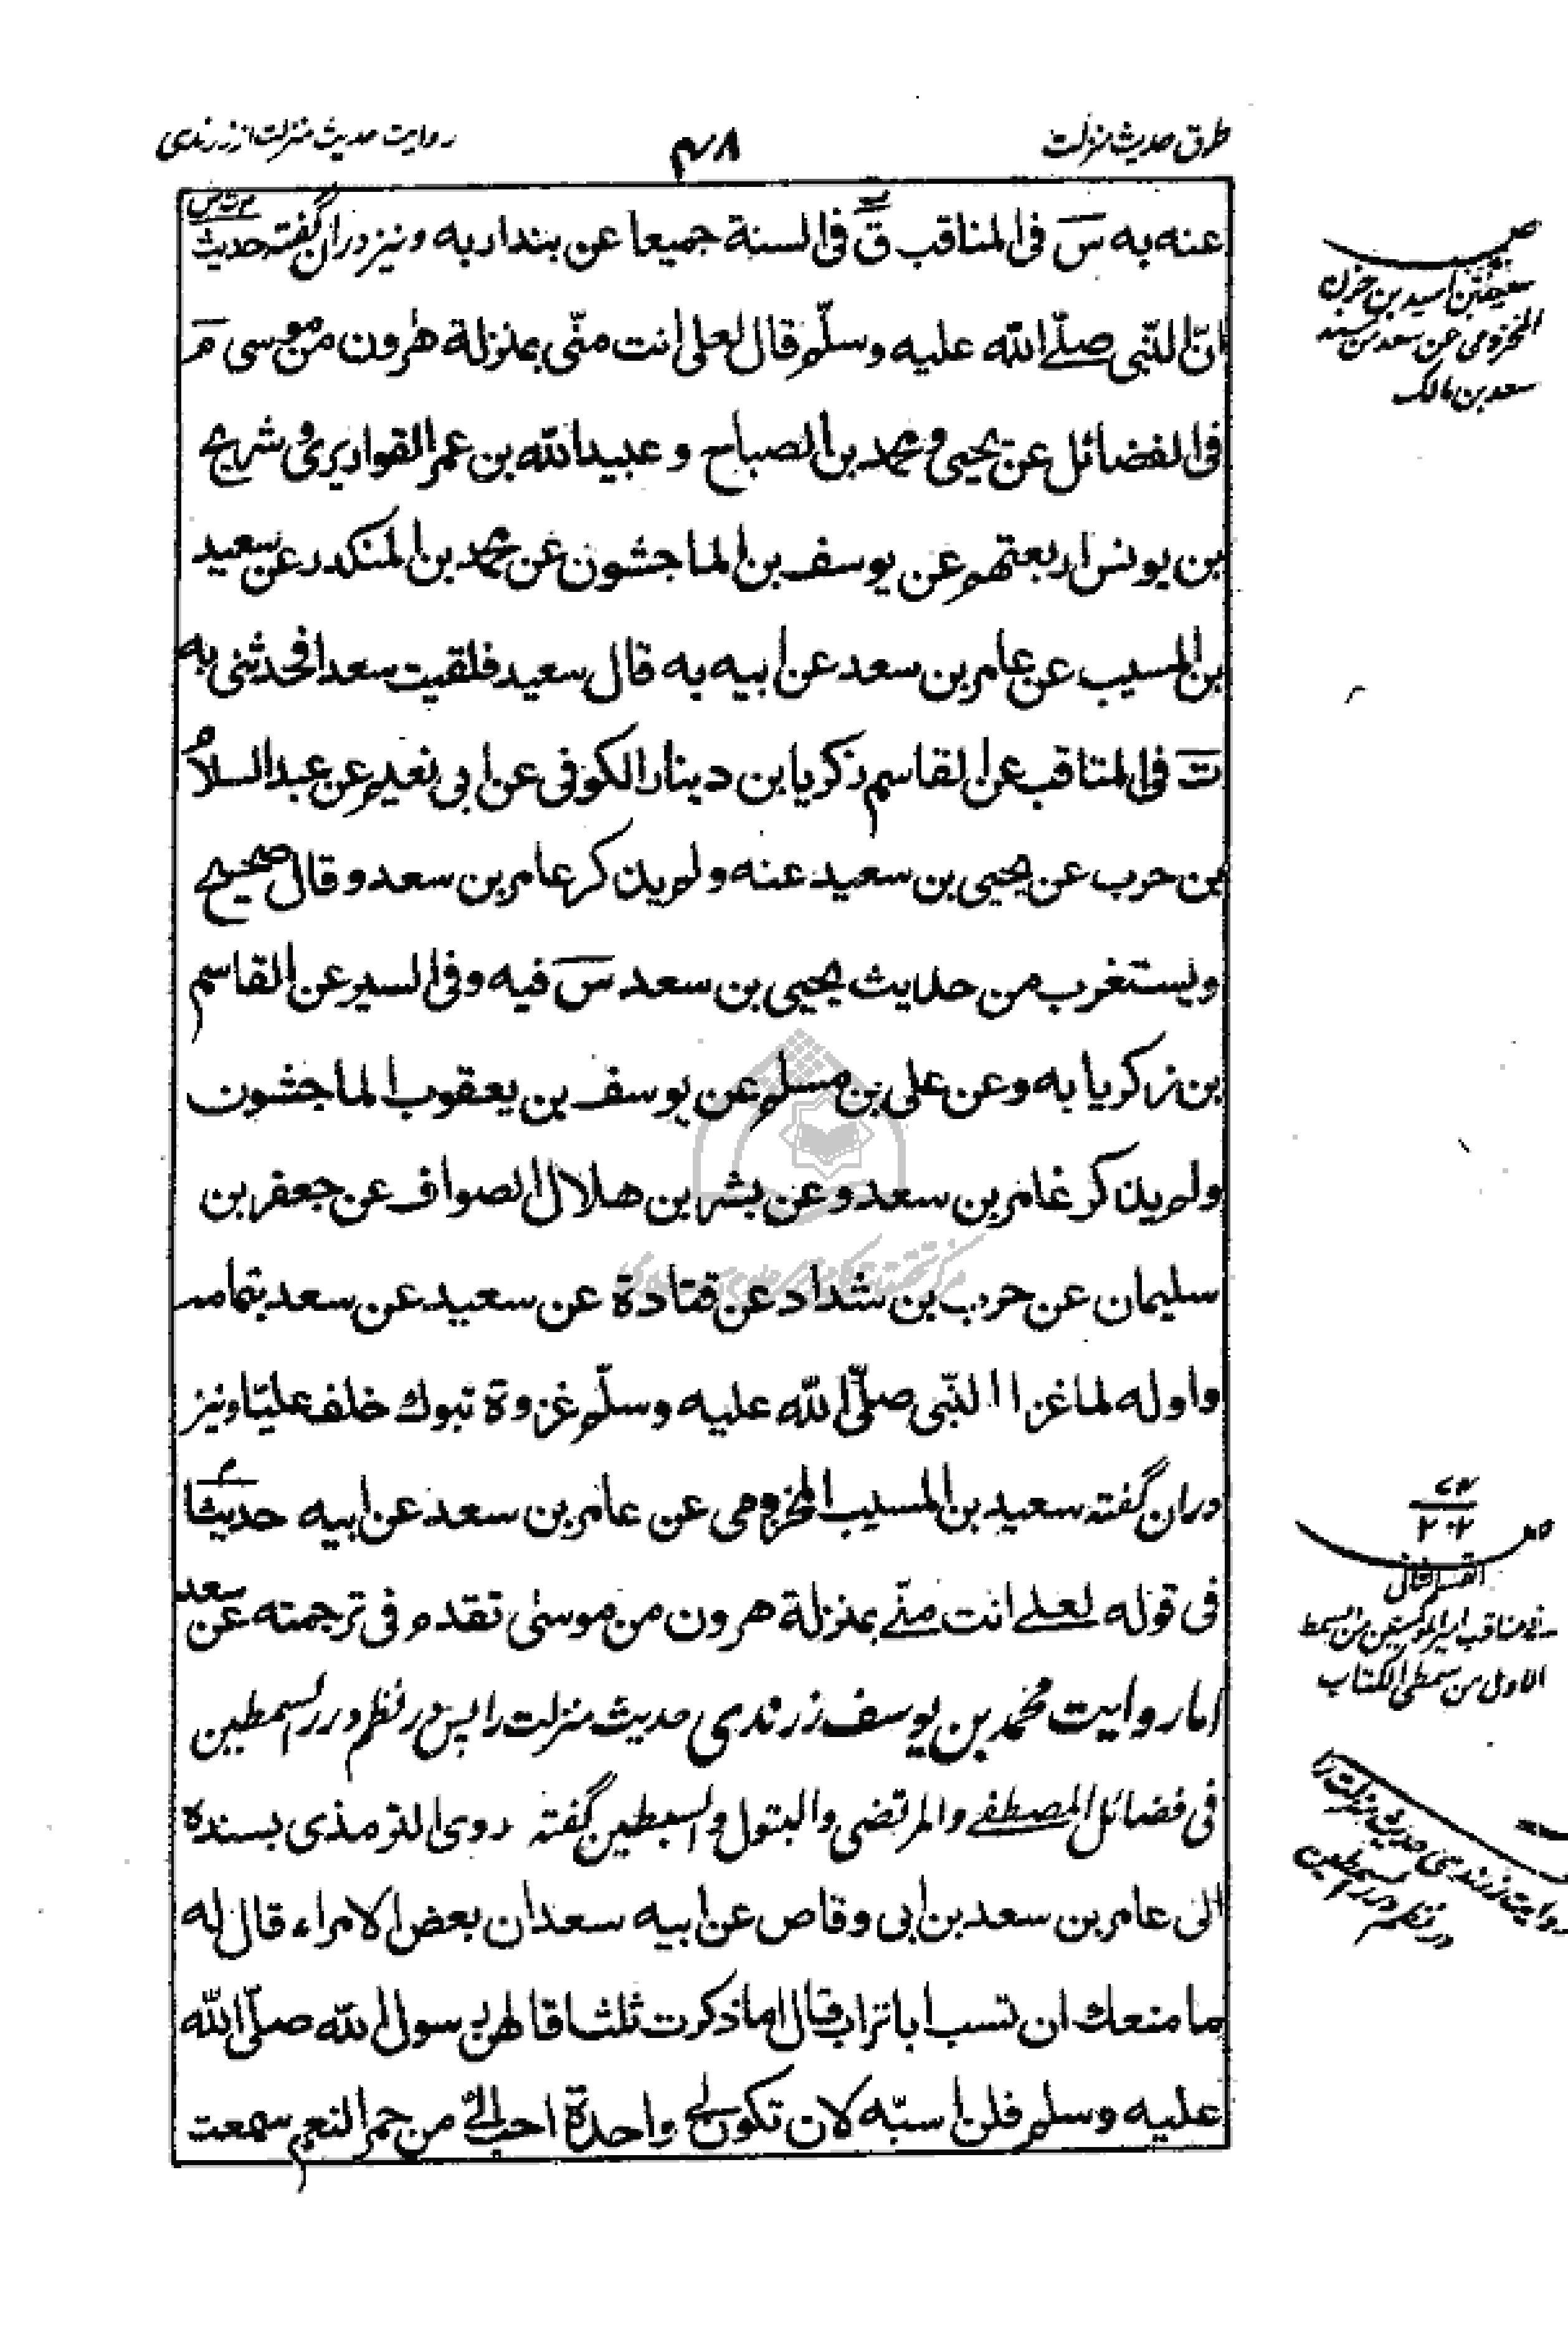 طرق حدیث منزلت
۴۸
روایت حدیث منزلت از زرندی
عنه به سَ فی المناقب قَ فی السنة جمیعا عن بندار به ونیز دران گفته حدیث م ت س
انّ النّبی صلّے الله علیه وسلّم قال لعلی انت منّی بمنزلة هٰرون من موسی مَ
فی الفضائل عن یحیی و محمد بن الصباح و عبید الله بن عمر القواریری و شریح
بن یونس اربعتهم عن یوسف بن الماجشون عن محمد بن المنکدر عن سعید
بن المسیب عن عامر بن سعد عن ابیه به قال سعید فلقیت سعدا فحدثنی به
تَ فی المناقب عن القاسم زکریا بن دینار الکوفی عن ابی نعیم عن عبد السلام
بن حرب عن یحیی بن سعید عنه ولم یذکر عامر بن سعد وقال صحیح
ویستغرب من حدیث یحیی بن سعد سَ فیه وفی السیر عن القاسم
بن زکریا به وعن علی بن مسلم عن یوسف بن یعقوب الماجشون
ولم یذکر عامر بن سعد وعن بشر بن هلال الصواف عن جعفر بن
سلیمان عن حرب بن شداد عن قتادة عن سعید عن سعد بتمامه
واوله لما غزا النّبی صلّی الله علیه وسلّم غزوة تبوك خلف علیّا ونیز
دران گفته سعید بن المسیب المخزومی عن عامر بن سعد عن ابیه حدیثا
فی قوله لعلے انت منّے بمنزلة هرون من موسیٰ تقدم فی ترجمته عن سعد
اما روایت محمد بن یوسف زرندی حدیث منزلت را پس در نظم درر السمطین
فی فضائل المصطفے والمرتضی والبتول والسبطین گفته روی الترمذی بسنده
الی عامر بن سعد بن ابی وقاص عن ابیه سعد ان بعض الامراء قال له
ما منعك ان تسب ابا تراب قال اما ذکرت ثلثا قالهن رسول الله صلّی الله
علیه وسلم فلن اسبّه لان تکون لی واحدة احب الیّ من حمر النعم سمعت
بن اسید بن حزن
المخزومی عن سعد من مسند
سعد بن مالک
القسم الثانی
فی مناقب امیر المومنین من السمط
الاول من سمطی الکتاب
روایت زرندی حدیث منزلت را
در نظم درر السمطین